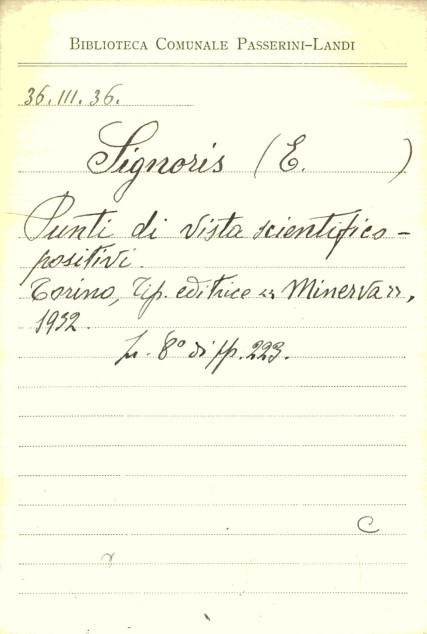 BIBLIOTECA COMUNALE PASSERINI-LANDI
36.III.36.
Signoris (E. )
Punti di vista scientifico-
positivi.
Torino, Tip. editrice «Minerva»,
1932.
8° di pp. 223.
C